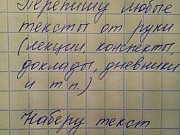 Перепишу любые
тексты от руки
(лекции, конспекты,
доклады, дневники
и т.п.)
Наберу текст